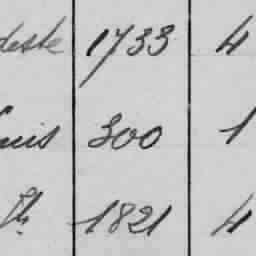 deste 1733 4
ouis 300 1
th 1821 4